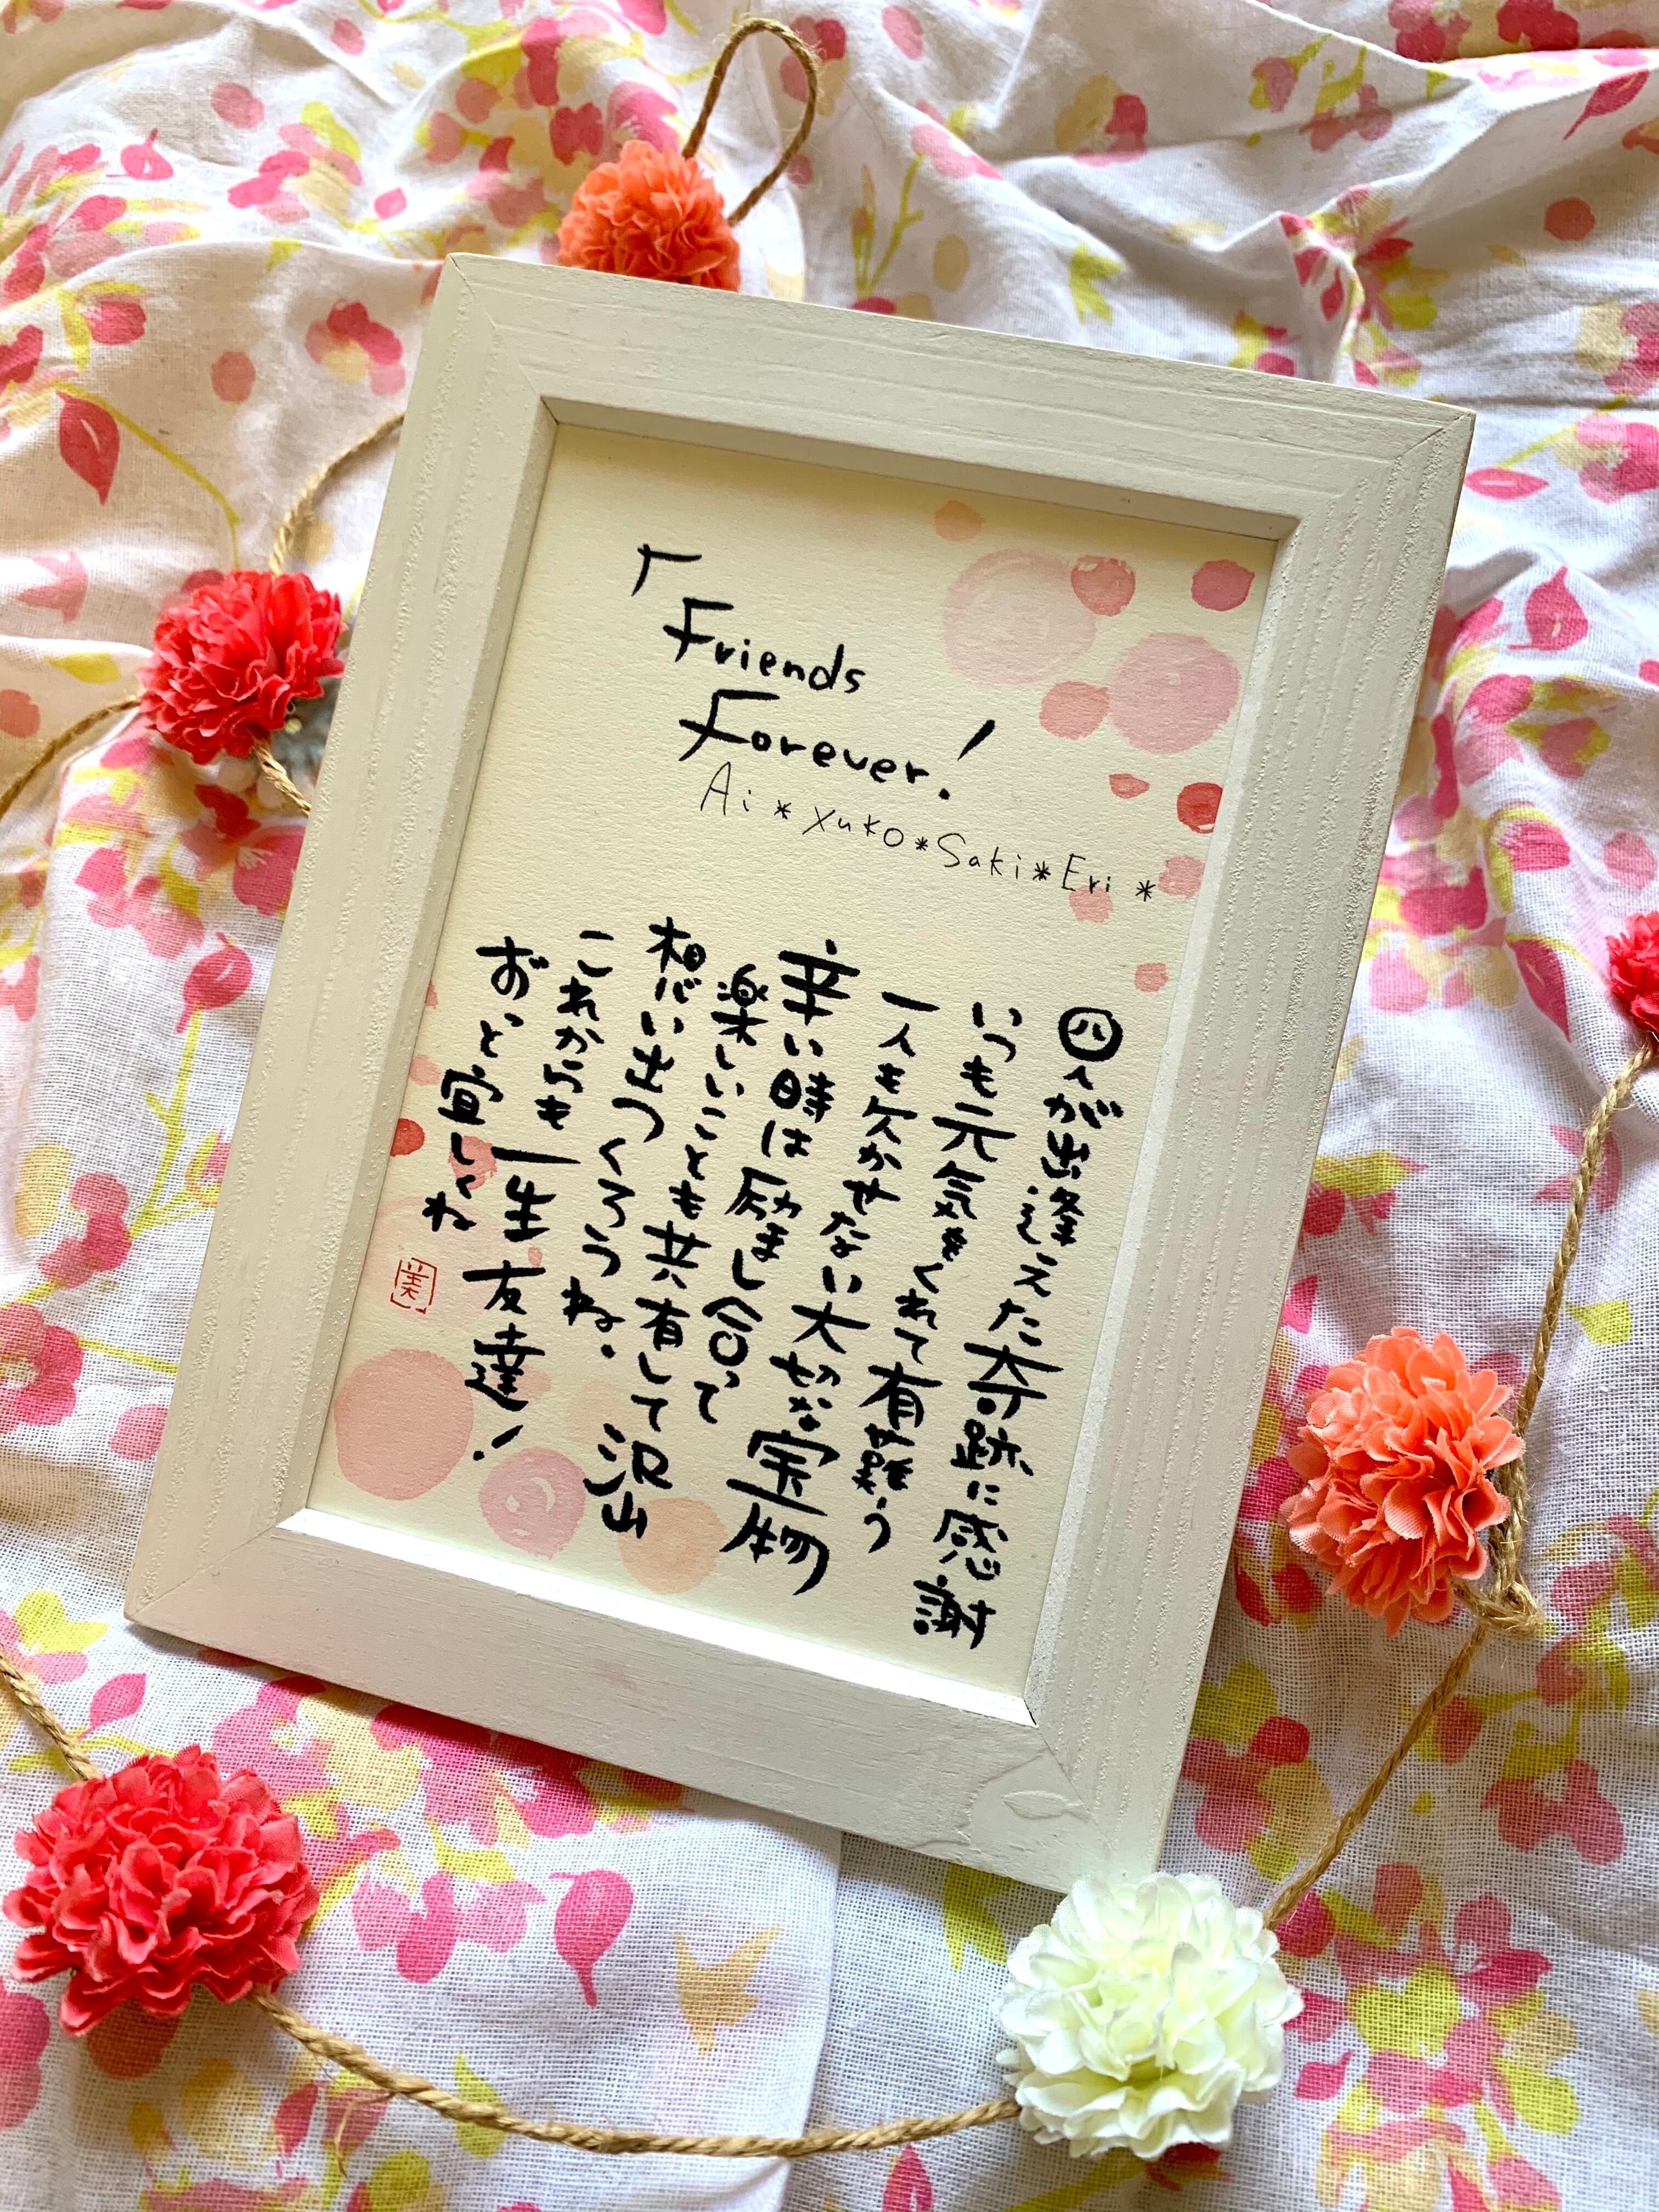 「Friends
Forever!
Ai*Yuko*Saki*Eri*
四人が出逢えた奇跡に感謝
いつも元気をくれて有難う
一人も欠かせない大切な宝物
辛い時は励まし合って
楽しいことも共有して沢山
想い出つくろうね。
これからも一生友達!
ずっと宜しくね
美